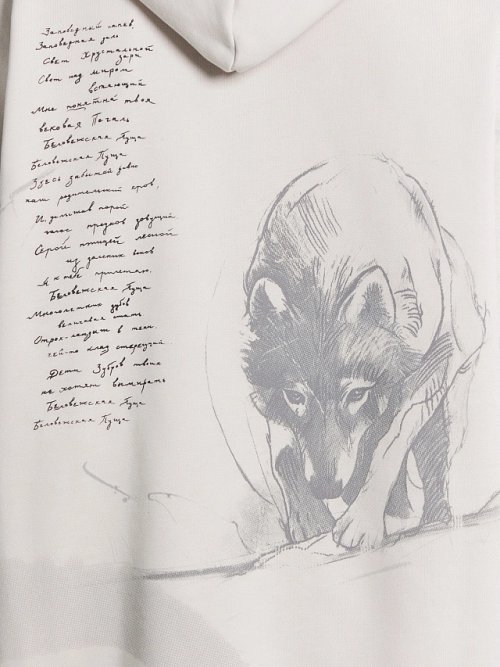 Заповедный напев,
Заповедная даль
Свет Хрустальной
зари
Свет над миром
встающий
Мне понятна твоя
вековая Печаль
Беловежская Пуща
Беловежская Пуща
Здесь забытый давно
наш родительский кров,
И, услышав порой
голос предков зовущий
Серой птицей лесной
из далеких веков
Я к тебе прилетаю,
Беловежская Пуща
Многолетних дубов
величавая стать
Отрок-ландыш в тени
чей-то клад стерегущий
Дети Зубров твоих
не хотят вымирать
Беловежская Пуща
Беловежская Пуща